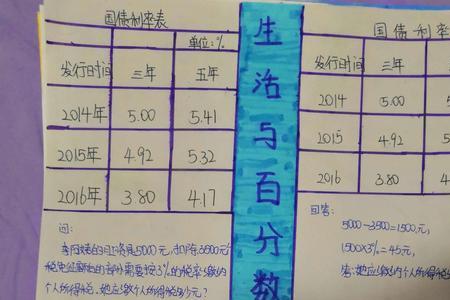 国债利率表
单位:%
发行时间 三年 五年
2014年 5.00 5.41
2015年 4.92 5.32
2016年 3.80 4.17
问:
李阿姨的月工资是5000元,扣除3500元
税免征额的部分需要按3%的税率缴纳
个人所得税。她应缴个人所得税多少元?
生活与百分数
国债利率
发行时间 三年
2014 5.00
2015 4.92 5
2016 3.80 4
回答:
5000-3500=1500元,
1500×3%=45元,
答:她应缴纳个人所得税